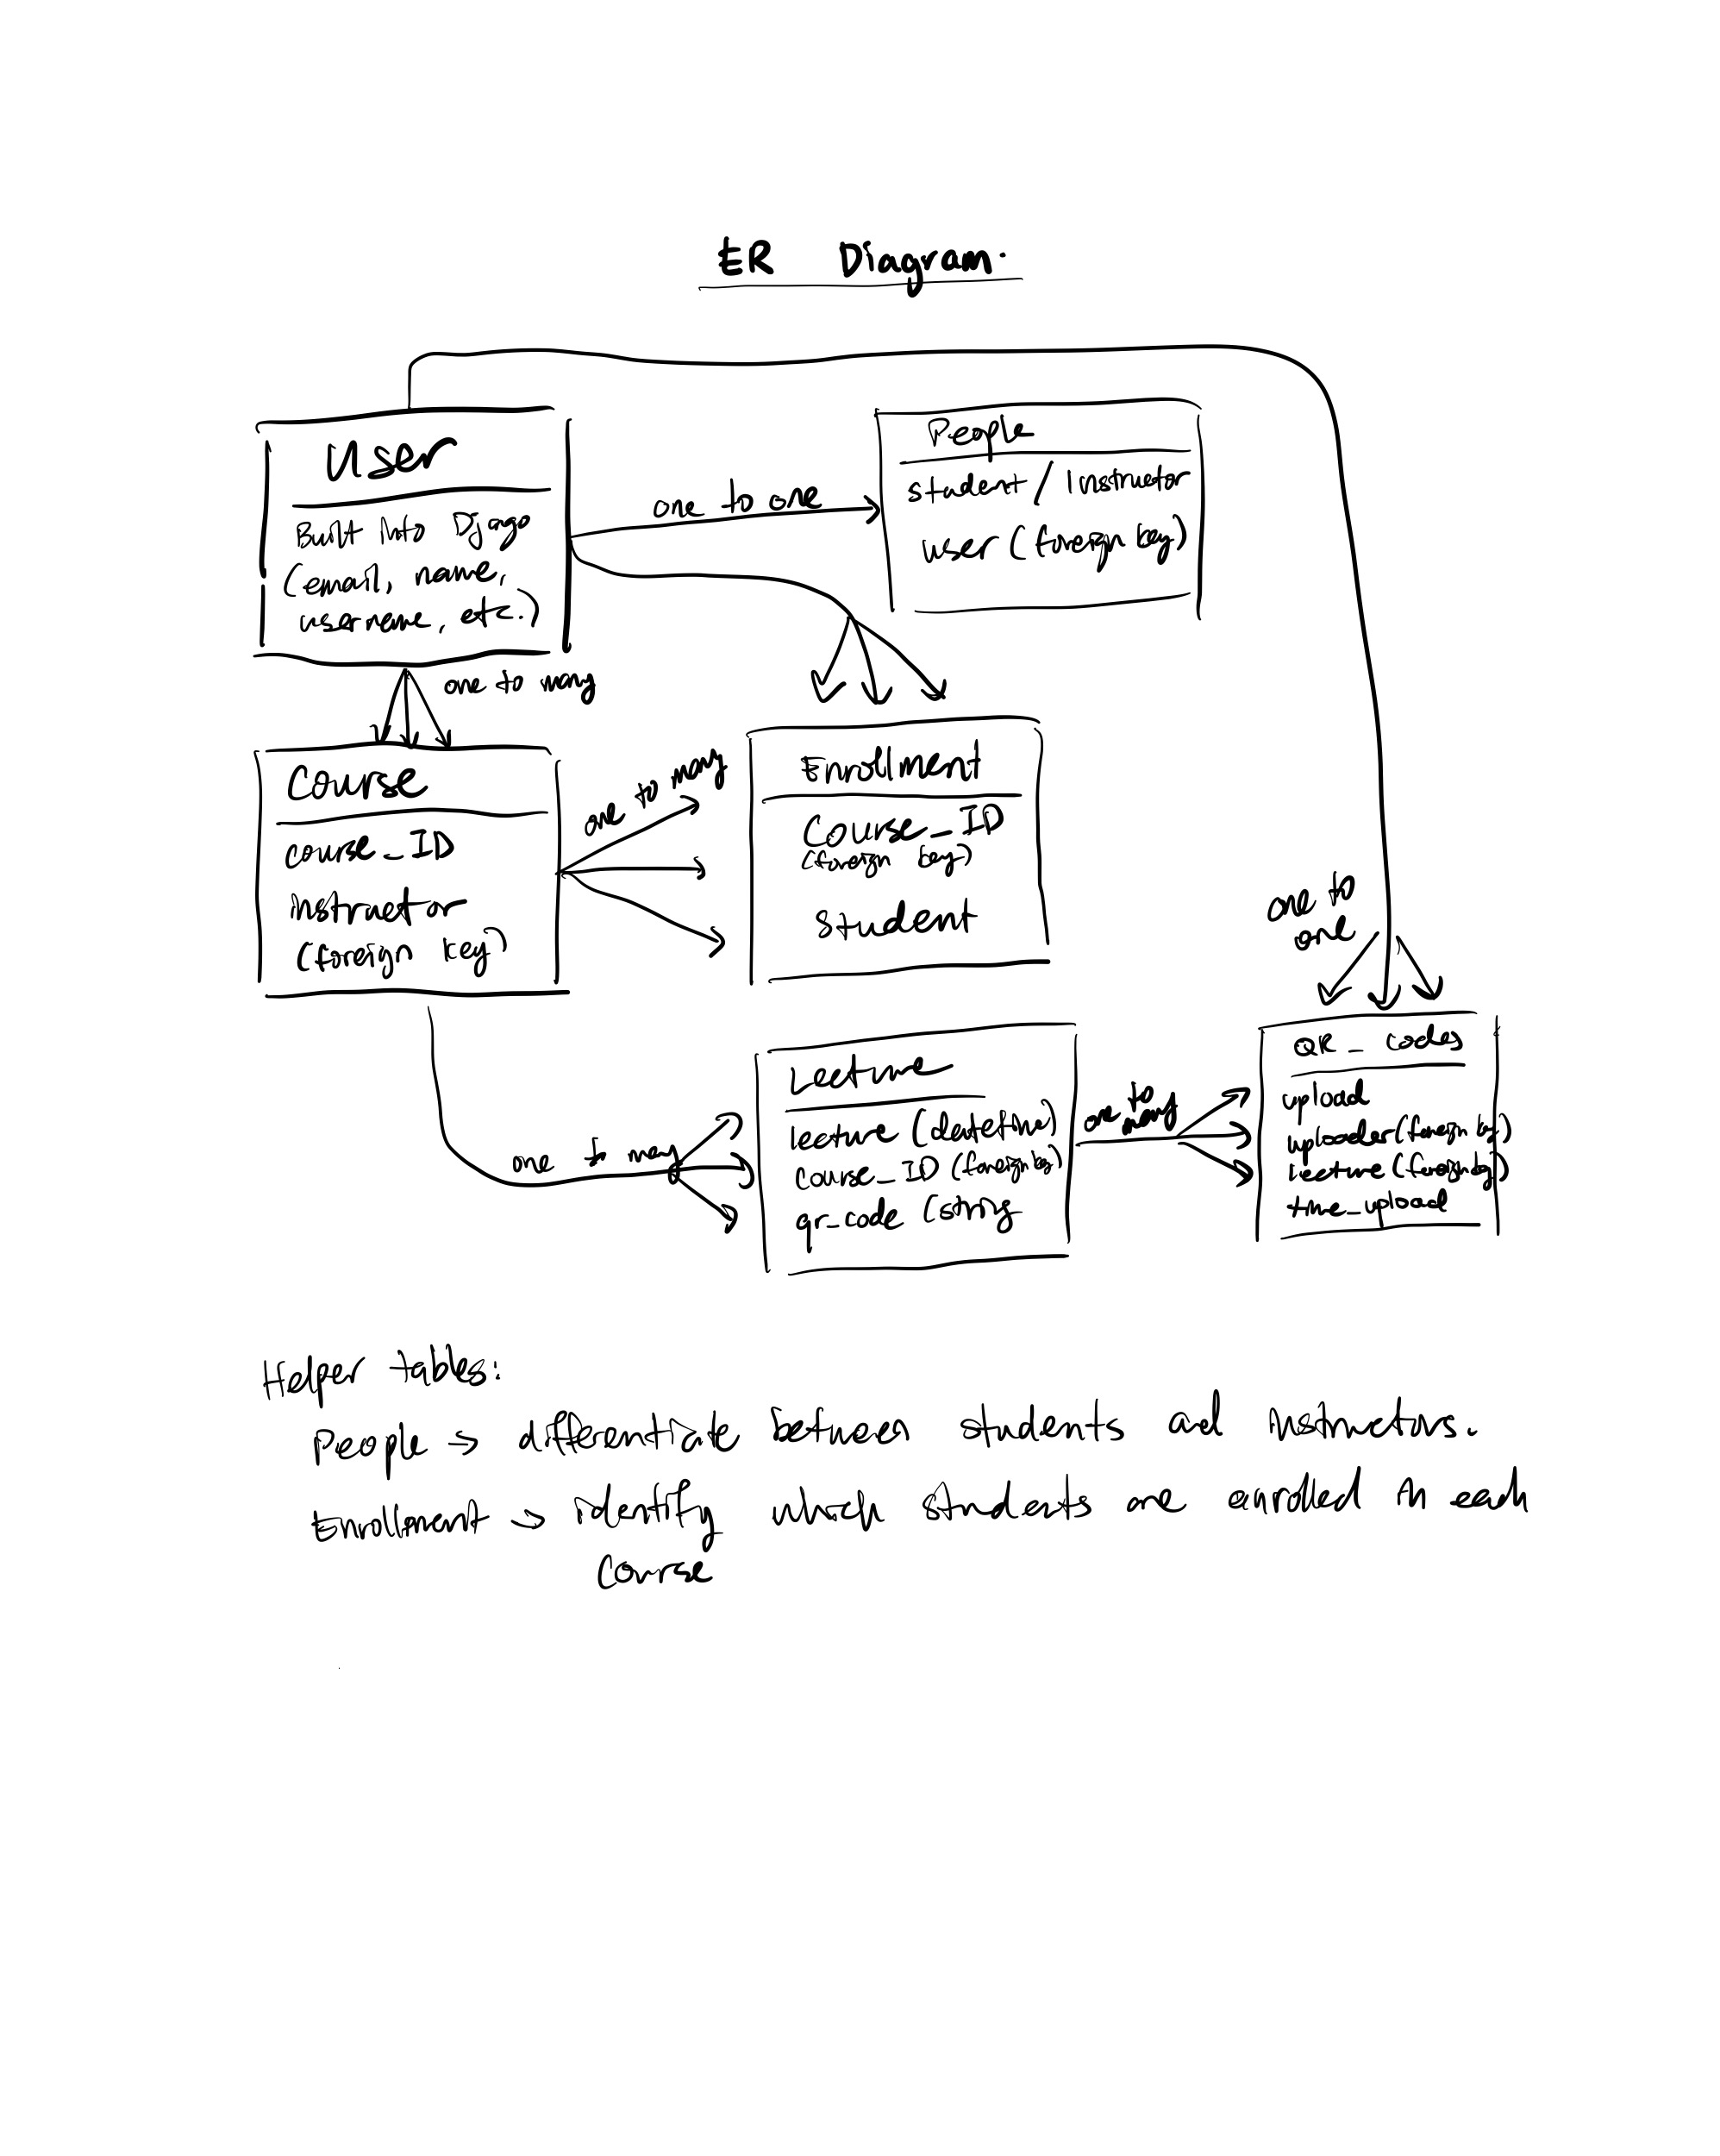 ER Diagram.
User
Built into Django
(email, name,
username, etc.)
one to one
People
student / Instructor
user (foreign key)
one to many
Course
course_ID
instructor
(foreign key)
one to many
Enrollment
Course_ID
(foreign key)
student
one to
one
one to many
Lecture
lecture (datetime)
course_ID (foreign key)
qr_code (string
one to
many
QR_codes
upload
uploader (foreign key)
lecture (foreign key)
time_upload
Helper tables:
People → differentiate between students and instructors.
Enrollment → identify which students are enrolled in each
course